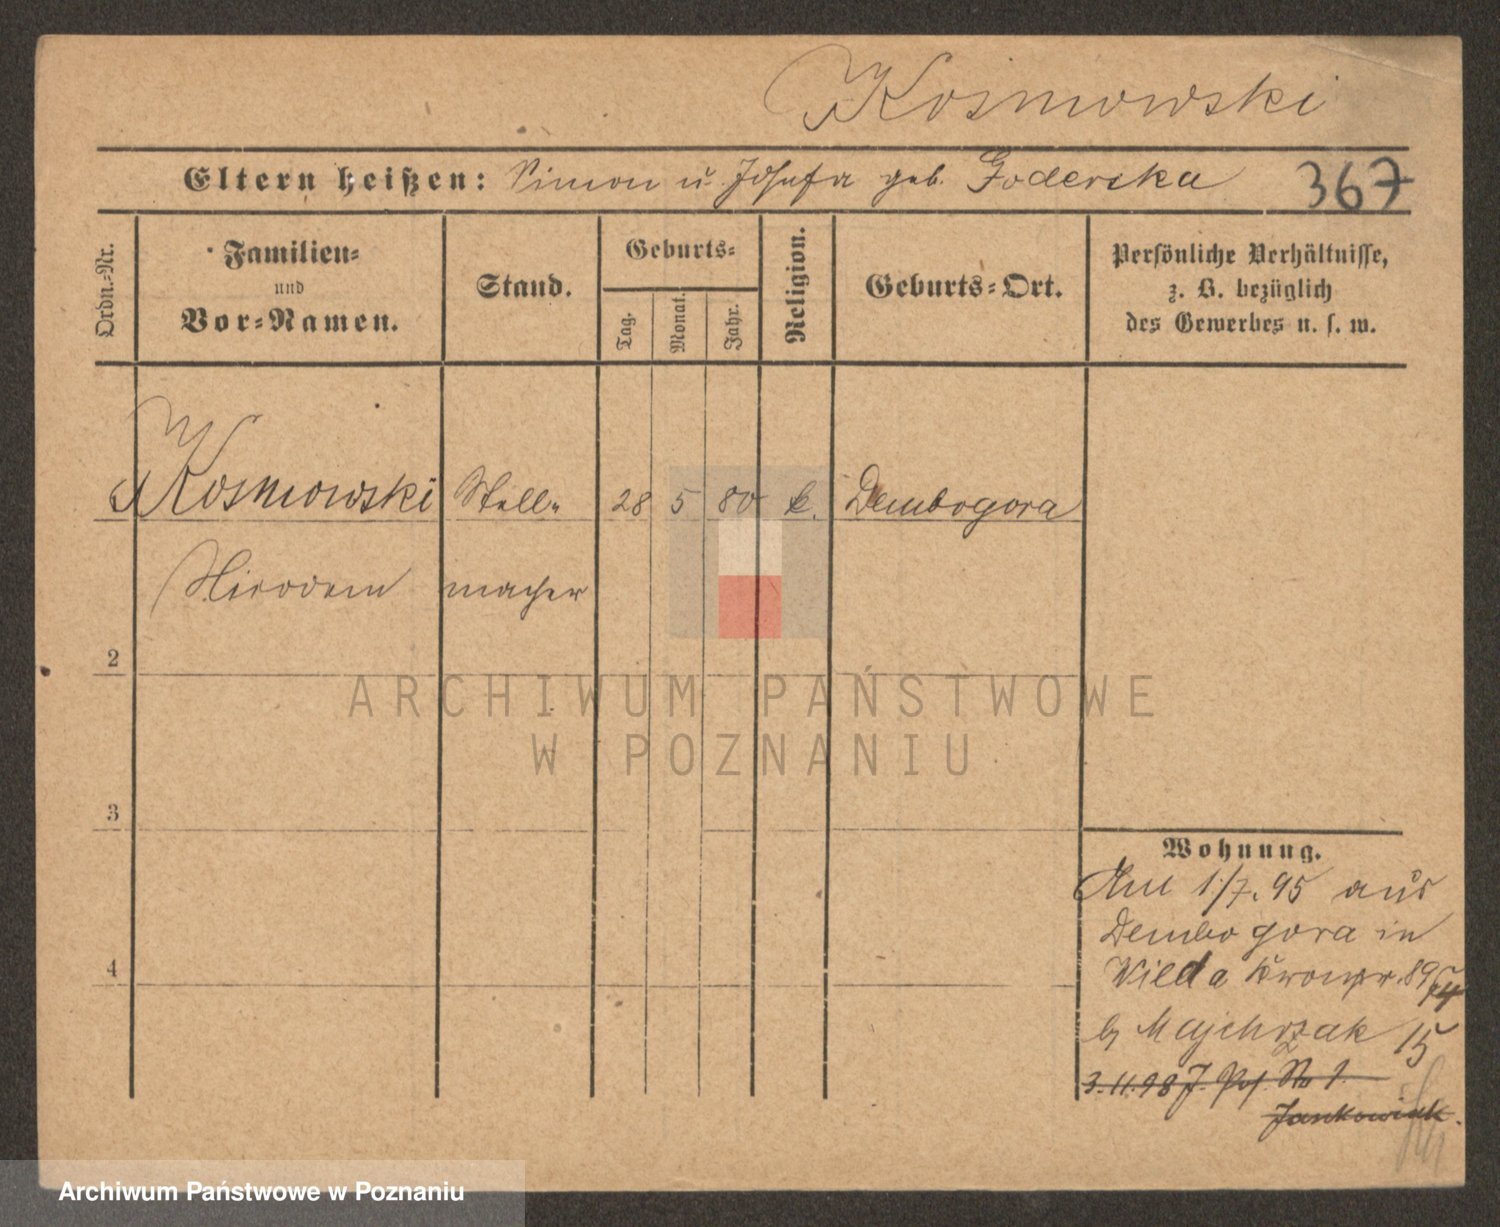 Kosmowski
Eltern heißen: Simon u Josefa geb. Goderska 367
Ordn.-Nr.
Familien-
und
Vor-Namen.
Stand.
Geburts-
Tag.
Monat.
Jahr.
Religion.
Geburts-Ort.
Persönliche Verhältnisse,
z. B. bezüglich
des Gewerbes u. s. w.
Kosmowski Stell- 28 5 80 k. Dembogora
macher
2
3
4
Wohnung.
1/7. 95 aus
Dembogora in
Wilda Kronpr. 89
b Majchrzak 15
3.11.98 No 1.
Jankowiak.
ARCHIWUM PAŃSTWOWE
W POZNANIU
Archiwum Państwowe w Poznaniu